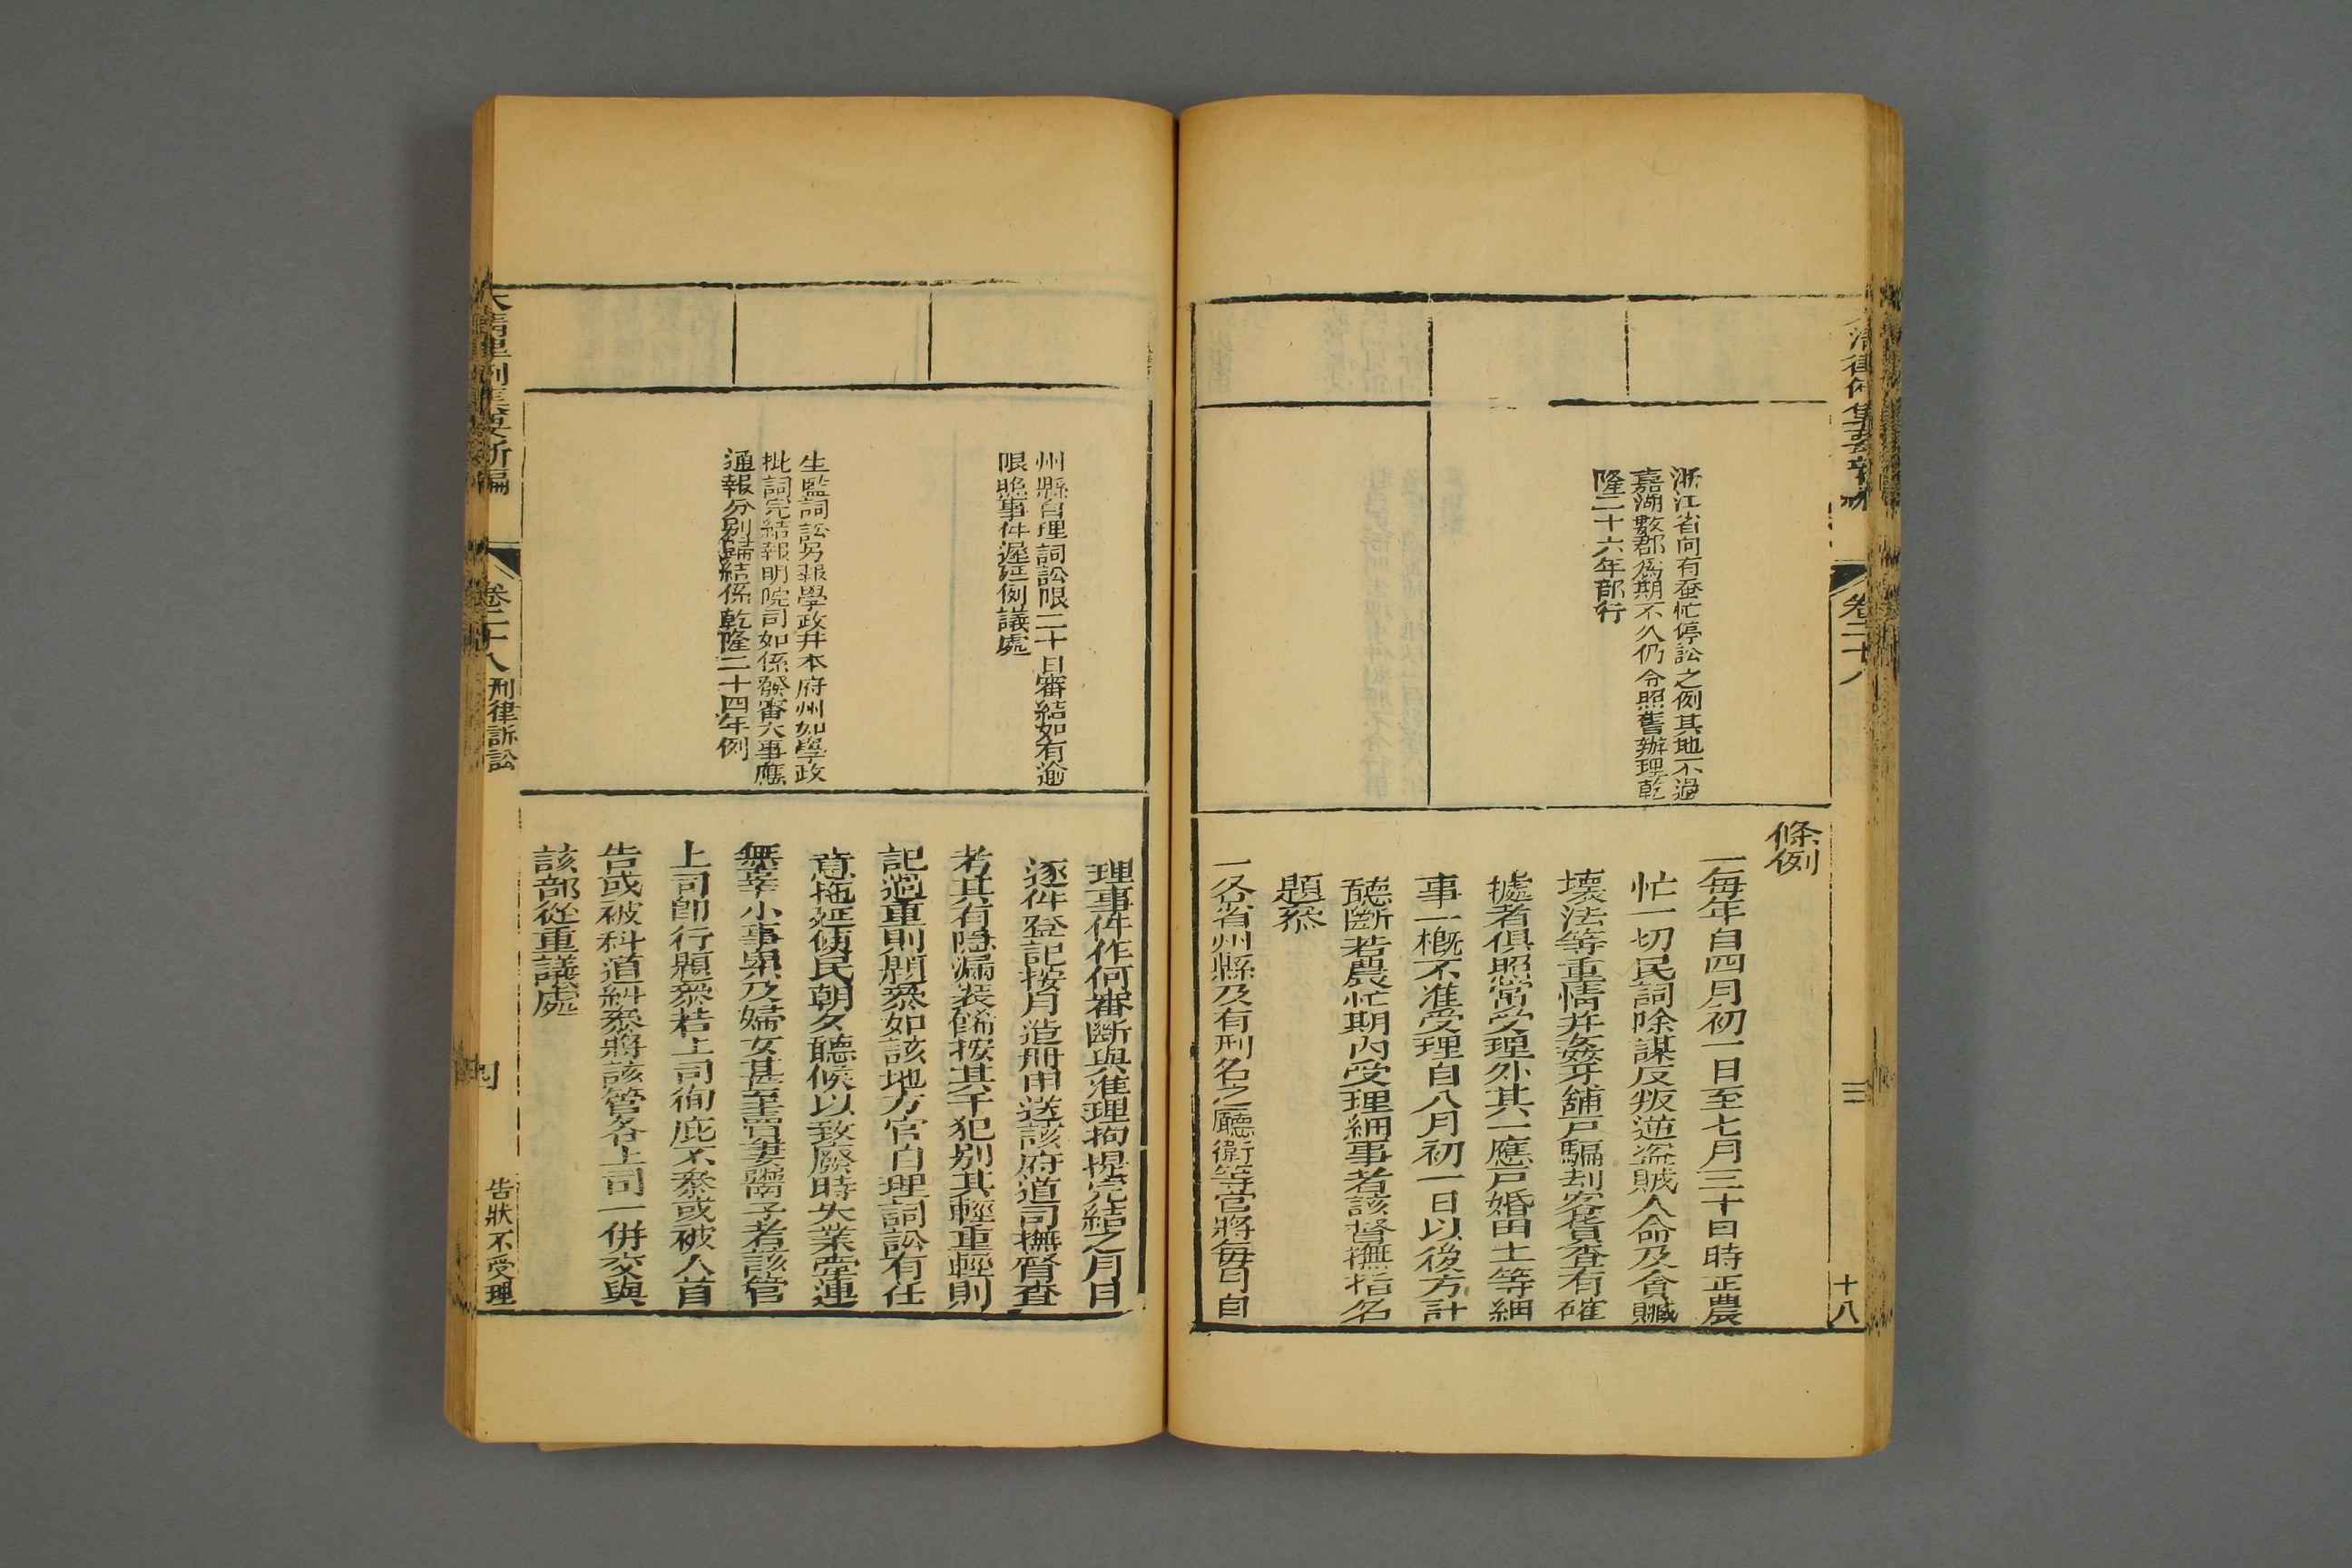 卷二十八
三
十八
浙江省向有蚕忙停訟之例其地不過
嘉湖數郡為期不久仍令照舊辦理乾
隆二十六年部行
條例
一每年自四月初一日至七月三十日時正農
忙一切民詞除謀反叛逆盜賊人命及貪贓
壞法等重情并姦牙舖戶騙刦客貨查有確
據者俱照常受理外其一應戶婚田土等細
事一槪不准受理自八月初一日以後方許
聽斷若農忙期內受理細事者該督撫指名
題叅
一各省州縣及有刑名之廳衛等官將每月自
州縣自理詞訟限二十日審結如有逾
限照事件遲延例議處
生監詞訟另報學政并本府州如學政
批詞完結報明院司如係發審大事應
通報分别歸結係乾隆二十四年例
理事件作何審斷與准理拘提完結之月日
逐件登記按月造冊申送該府道司撫督查
若其有隱漏裝餙按其干犯別其輕重輕則
記過重則題叅如該地方官自理詞訟有任
意拖延使民朝夕聽候以致廢時失業牽連
無辜小事累及婦女甚至賣妻鬻子者該管
上司卽行題叅若上司徇庇不叅或被人首
告或被科道糾叅將該管各上司一併交與
該部從重議處
大清律例集要新編
卷二十八
刑律訴訟
告狀不受理